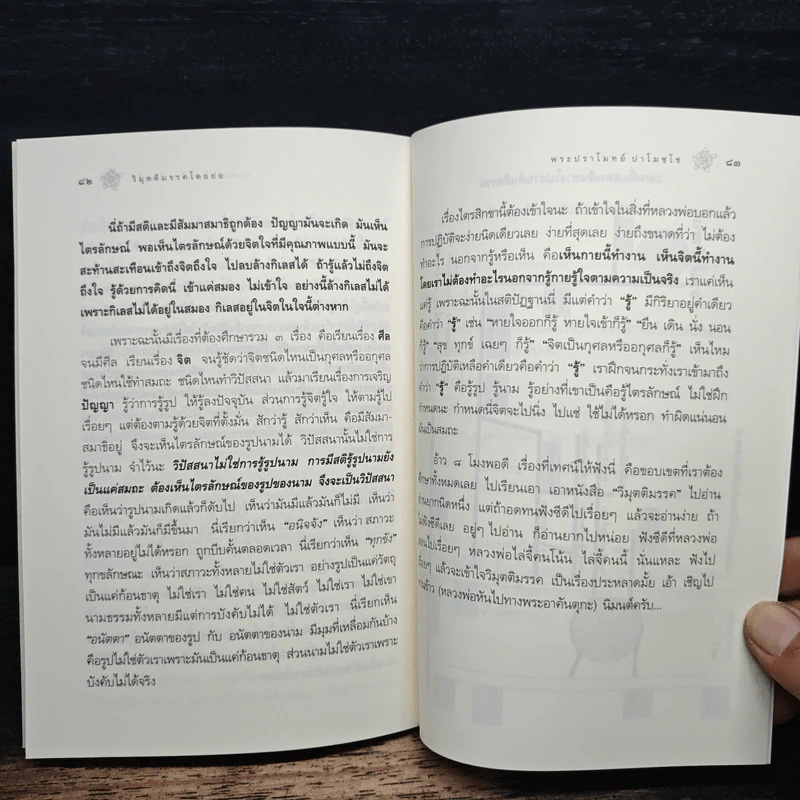 ๘๒ วิมุตติมรรคโดยย่อ
นี่ถ้ามีสติและมีสัมมาสมาธิถูกต้อง ปัญญามันจะเกิด มันเห็น
ไตรลักษณ์ พอเห็นไตรลักษณ์ด้วยจิตใจที่มีคุณภาพแบบนี้ มันจะ
สะท้านสะเทือนเข้าถึงจิตถึงใจ ไปลบล้างกิเลสได้ ถ้ารู้แล้วไม่ถึงจิต
ถึงใจ รู้ด้วยการคิดนี่ เข้าแค่สมอง ไม่เข้าใจ อย่างนี้ล้างกิเลสไม่ได้
เพราะกิเลสไม่ได้อยู่ในสมอง กิเลสอยู่ในจิตในใจนี้ต่างหาก
เพราะฉะนั้นมีเรื่องที่ต้องศึกษารวม ๓ เรื่อง คือเรียนเรื่อง ศีล
จนมีศีล เรียนเรื่อง จิต จนรู้ชัดว่าจิตชนิดไหนเป็นกุศลหรืออกุศล
ชนิดไหนใช้ทำสมถะ ชนิดไหนทำวิปัสสนา แล้วมาเรียนเรื่องการเจริญ
ปัญญา รู้ว่าการรู้รูป ให้รู้ลงปัจจุบัน ส่วนการรู้จิตรู้ใจ ให้ตามรู้ไป
เรื่อยๆ แต่ต้องตามรู้ด้วยจิตที่ตั้งมั่น สักว่ารู้ สักว่าเห็น คือมีสัมมา-
สมาธิอยู่ จึงจะเห็นไตรลักษณ์ของรูปนามได้ วิปัสสนานั้นไม่ใช่การ
รู้รูปนาม จำไว้นะ วิปัสสนาไม่ใช่การรู้รูปนาม การมีสติรู้รูปนามยัง
เป็นแค่สมถะ ต้องเห็นไตรลักษณ์ของรูปของนาม จึงจะเป็นวิปัสสนา
คือเห็นว่ารูปนามเกิดแล้วก็ดับไป เห็นว่ามันมีแล้วมันก็ไม่มี เห็นว่า
มันไม่มีแล้วมันก็มีขึ้นมา นี่เรียกว่าเห็น “อนิจจัง” เห็นว่า สภาวะ
ทั้งหลายอยู่ไม่ได้หรอก ถูกบีบคั้นตลอดเวลา นี่เรียกว่าเห็น “ทุกขัง”
ทุกขลักษณะ เห็นว่าสภาวะทั้งหลายไม่ใช่ตัวเรา อย่างรูปเป็นแค่วัตถุ
เป็นแค่ก้อนธาตุ ไม่ใช่เรา ไม่ใช่คน ไม่ใช่สัตว์ ไม่ใช่เรา ไม่ใช่เขา
นามธรรมทั้งหลายมีแต่การบังคับไม่ได้ ไม่ใช่ตัวเรา นี่เรียกเห็น
“อนัตตา” อนัตตาของรูป กับ อนัตตาของนาม มีมุมที่เหลื่อมกันบ้าง
คือรูปไม่ใช่ตัวเราเพราะมันเป็นแค่ก้อนธาตุ ส่วนนามไม่ใช่ตัวเราเพราะ
บังคับไม่ได้จริง
พระปราโมทย์ ปาโมชฺโช ๘๓
เรื่องไตรสิกขานี้ต้องเข้าใจนะ ถ้าเข้าใจในสิ่งที่หลวงพ่อบอกแล้ว
การปฏิบัติจะง่ายนิดเดียวเลย ง่ายที่สุดเลย ง่ายถึงขนาดที่ว่า ไม่ต้อง
ทำอะไร นอกจากรู้หรือเห็น คือเห็นกายนี้ทำงาน เห็นจิตนี้ทำงาน
โดยเราไม่ต้องทำอะไรนอกจากรู้กายรู้ใจตามความเป็นจริง เราแค่เห็น
แค่รู้ เพราะฉะนั้นในสติปัฏฐานนี่ มีแต่คำว่า “รู้” มีกิริยาอยู่คำเดียว
คือคำว่า “รู้” เช่น “หายใจออกก็รู้ หายใจเข้าก็รู้” “ยืน เดิน นั่ง นอน
ก็รู้” “สุข ทุกข์ เฉยๆ ก็รู้” “จิตเป็นกุศลหรืออกุศลก็รู้” เห็นไหม
ว่าการปฏิบัติเหลือคำเดียวคือคำว่า “รู้” เราฝึกจนกระทั่งเราเข้ามาถึง
คำว่า “รู้” คือรู้รูป รู้นาม รู้อย่างที่เขาเป็นคือรู้ไตรลักษณ์ ไม่ใช่ฝึก
กำหนดนะ กำหนดนี่จิตจะไปนิ่ง ไปแช่ ใช้ไม่ได้หรอก ทำผิดแน่นอน
มันเป็นสมถะ
อ้าว ๘ โมงพอดี เรื่องที่เทศน์ให้ฟังนี่ คือขอบเขตที่เราต้อง
ศึกษาทั้งหมดเลย ไปเรียนเอา เอาหนังสือ “วิมุตติมรรค” ไปอ่าน
อ่านยากนิดหนึ่ง แต่ถ้าอดทนฟังซีดีไปเรื่อยๆ แล้วจะอ่านง่าย ถ้า
ไม่ฟังซีดีเลย อยู่ๆ ไปอ่าน ก็อ่านยากไปหน่อย ฟังซีดีที่หลวงพ่อ
สอนไปเรื่อยๆ หลวงพ่อไล่จี้คนโน้น ไล่จี้คนนี้ นั่นแหละ ฟังไป
เรื่อยๆ แล้วจะเข้าใจวิมุตติมรรค เป็นเรื่องประหลาดมั้ย เอ้า เชิญไป
ทานข้าว (หลวงพ่อหันไปทางพระอาคันตุกะ) นิมนต์ครับ...